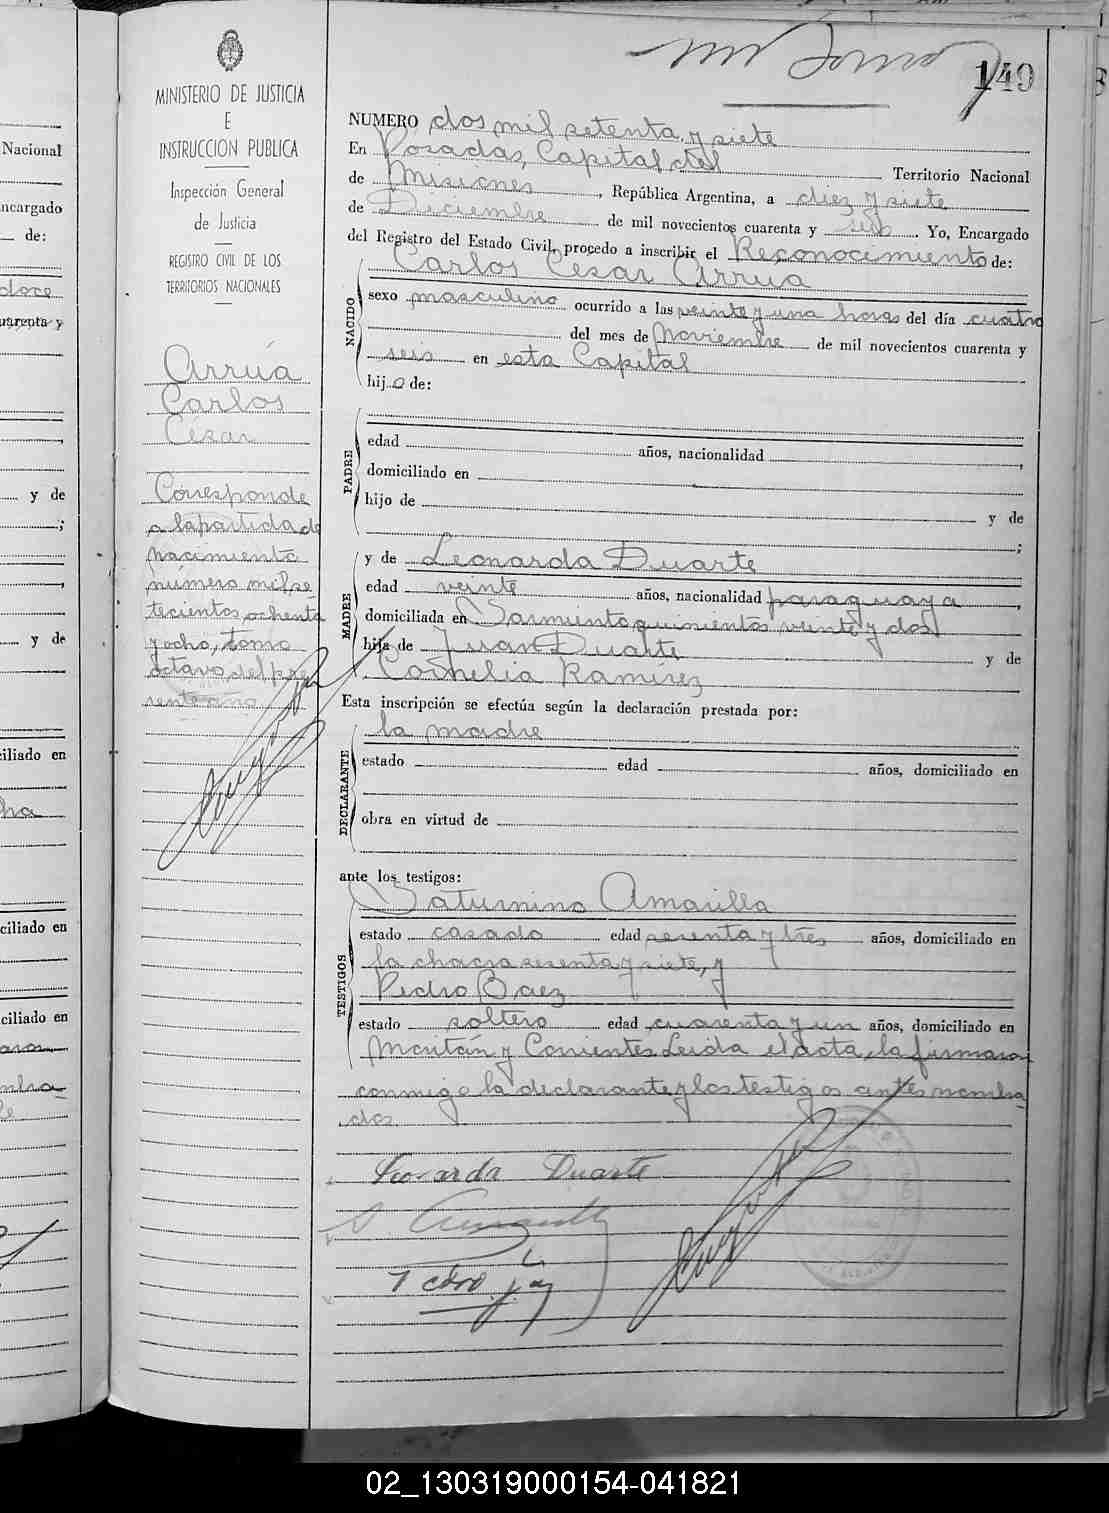 149
MINISTERIO DE JUSTICIA
E
INSTRUCCION PUBLICA
Inspección General
de Justicia
REGISTRO CIVIL DE LOS
TERRITORIOS NACIONALES
Arrúa
Carlos
César
Corresponde
a la partida de
nacimiento
número mil se-
tecientos ochenta
y ocho, tomo
octavo del pre-
sente año
NUMERO dos mil setenta y siete
En Posadas, Capital del Territorio Nacional
de Misiones, República Argentina, a diez y siete
de Diciembre de mil novecientos cuarenta y seis Yo, Encargado
del Registro del Estado Civil, procedo a inscribir el Reconocimiento de:
Carlos César Arrúa
NACIDO
sexo masculino ocurrido a las veinte y una horas del día cuatro
del mes de Noviembre de mil novecientos cuarenta y
seis en esta Capital
hijo de:
PADRE
edad años, nacionalidad
domiciliado en
hijo de y de
;
MADRE
y de Leonarda Duarte
edad veinte años, nacionalidad paraguaya,
domiciliada en Sarmiento quinientos veinte y dos
hija de Juan Duarte y de
Cornelia Ramírez
Esta inscripción se efectúa según la declaración prestada por:
la madre
DECLARANTE
estado edad años, domiciliado en
obra en virtud de
ante los testigos:
Saturnino Amarilla
TESTIGOS
estado casado edad sesenta y tres años, domiciliado en
la chacra sesenta y siete, y
Pedro Baez
estado soltero edad cuarenta y un años, domiciliado en
y Corrientes. Leida el acta, la firmaron
conmigo la declarante y los testigos antes nombra-
dos.
Leonarda Duarte
Nacional
ncargado
de:
doce
uarenta y
y de
;
y de
iliado en
ciliado en
ciliado en
02_130319000154-041821